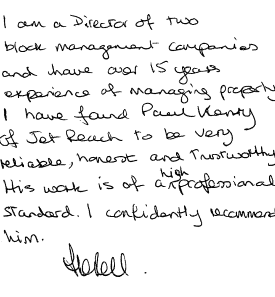 I am a Director of two
block management companies
and have over 15 years
experience of managing property
I have found Paul Kenny
of Jet Reach to be very
reliable, honest and Trustworthy
His work is of a high professional
standard. I confidently recommend
him.